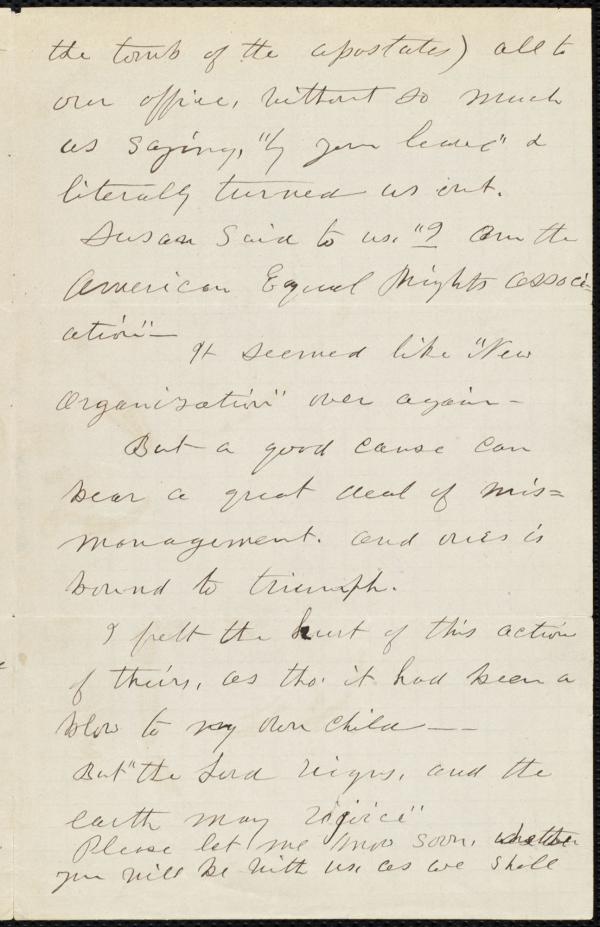 the tomb of the apostates) all to
our office, without so much
as saying, "by your leave" &
literally turned us out.
Susan said to us. "I am the
American Equal Rights Associ-
ation"—
It seemed like "New
Organization" over again—
But a good cause can
bear a great deal of mis=
management. and ours is
bound to triumph.
I felt the hurt of this action
of theirs, as tho' it had been a
blow to my own child——
But "the Lord reigns, and the
earth may rejoice"
Please let me know soon, whether
you will be with us, as we shall